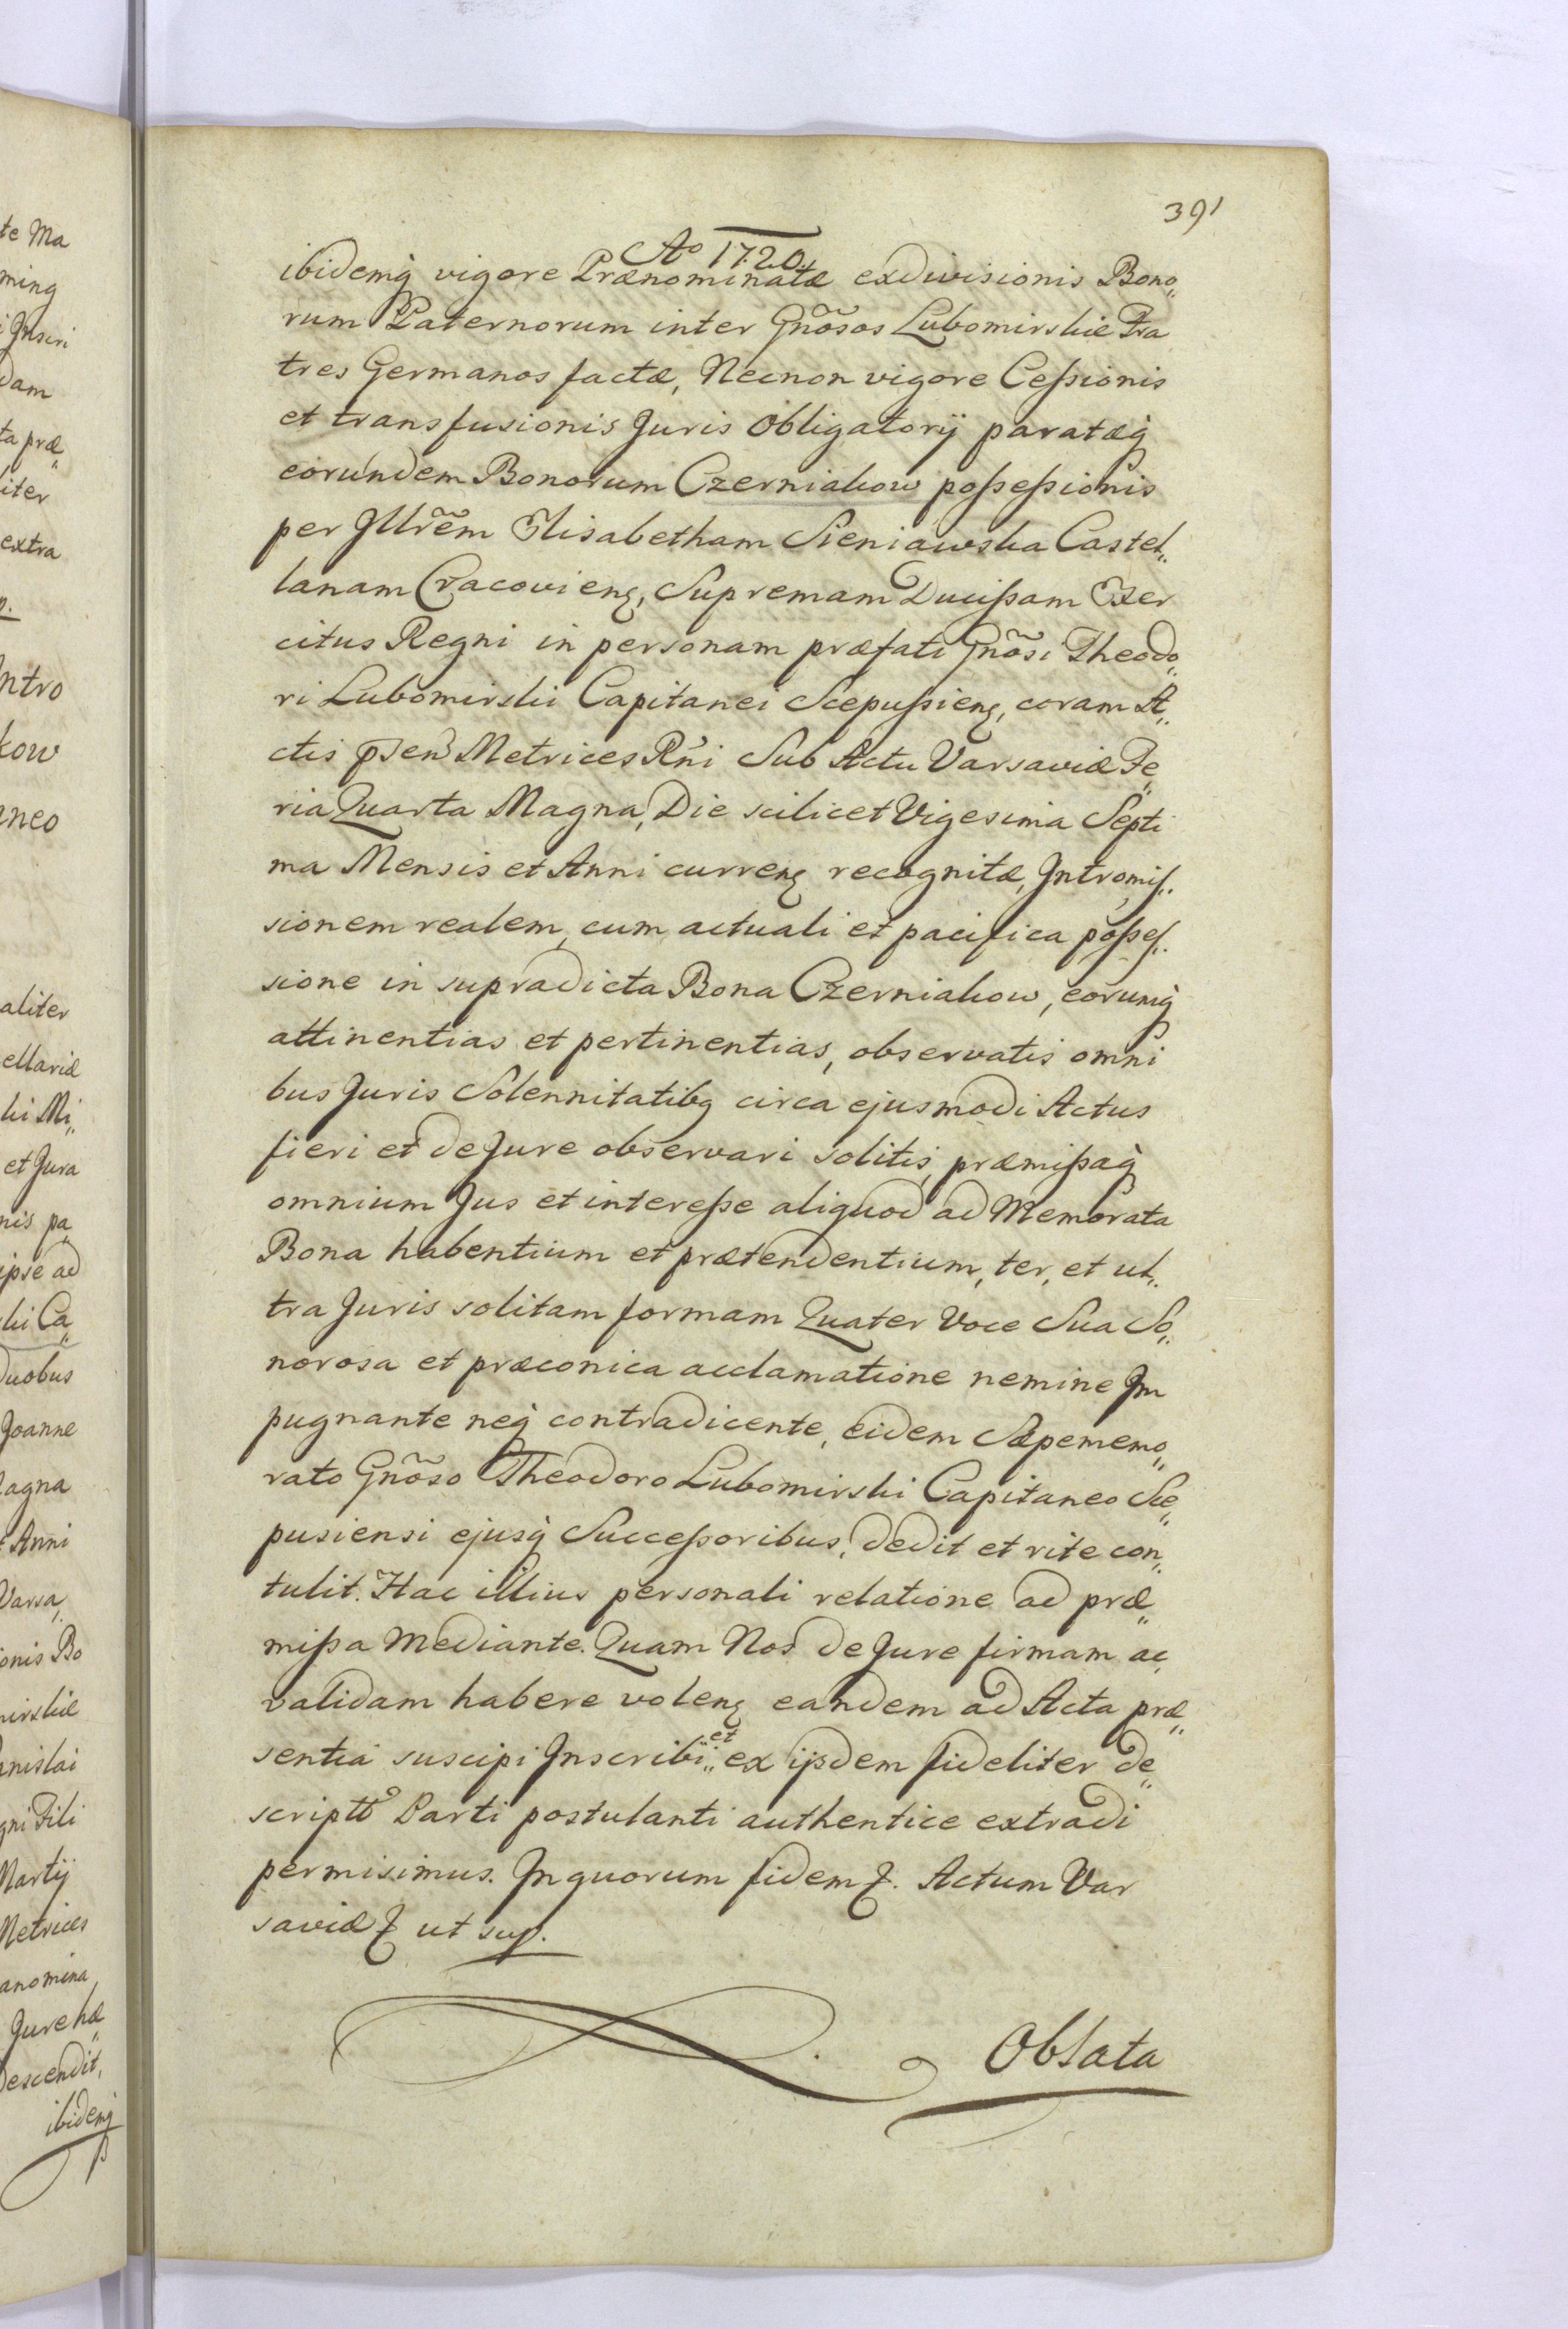 391
Ao 1720.
ibidemq vigore Prænominatæ exdivisionis Bono„
rum Paternorum inter Gnõsos Lubomirskie Fra
tres Germanos factæ, Necnon vigore Ceſsionis
et transfusionis Juris Obligatorij paratæq
eorundem Bonorum Czerniakow poſseſsionis
per Jllrẽm Elisabetham Sieniawska Castel„
lanam Cracovienʒ, Supremam Duciſsam Exer
citus Regni in personam præfati Gnõsi Theodo„
ri Lubomirski Capitanei Scepuſsienʒ, coram A„
ctis p̄sen Metrices Rni Sub Actu Varsaviæ Fe„
ria Quarta Magna, Die scilicet Vigesima Septi
ma Mensis et Anni currenʒ recognitæ, Jntromiſ„
sionem realem, cum actuali et pacifica poſseſ„
sione in supradicta Bona Czerniakow, eorumq
attinentias et pertinentias, observatis omni
bus Juris Solennitatibʒ circa ejusmodi Actus
fieri et de Jure observari solitis, præmiſsaq
omnium Jus et intereſse aliquod ad Memorata
Bona habentium et prætendentium, ter, et ul„
tra Juris solitam formam Quater Voce Sua So„
norosa et præconica acclamatione nemine Jm
pugnante neq contradicente, eidem Sæpememo„
rato Gnõso Theodoro Lubomirski Capitaneo Sce„
pusiensi ejusq Succeſsoribus, dedit et rite con„
tulit. Hac illius personali relatione ad præ„
miſsa Mediante. Quam Nos de Jure firmam ac
validam habere volenʒ eandem ad Acta præ„
sentia suscipi Jnscribi„ et ex ijsdem fideliter de„
scriptt Parti postulanti authentice extradi
permisimus. Jn quorum fidem ʒ. Actum Var
saviæ ʒ ut sup.
Oblata
te Ma
ming
Jnscri
dam
ta præ„
liter
extra
ntro
kow
neo
aliter
ellariæ
ki Mi„
et Jura
nis pa„
ipse ad
ki Ca„
duobus
Joanne
agna
Anni
Varsa„
onis Bo
mirskie
nislai
gni Fili
Martij
Metrices
anomina„
Jure hæ„
descendit,
ibidemq